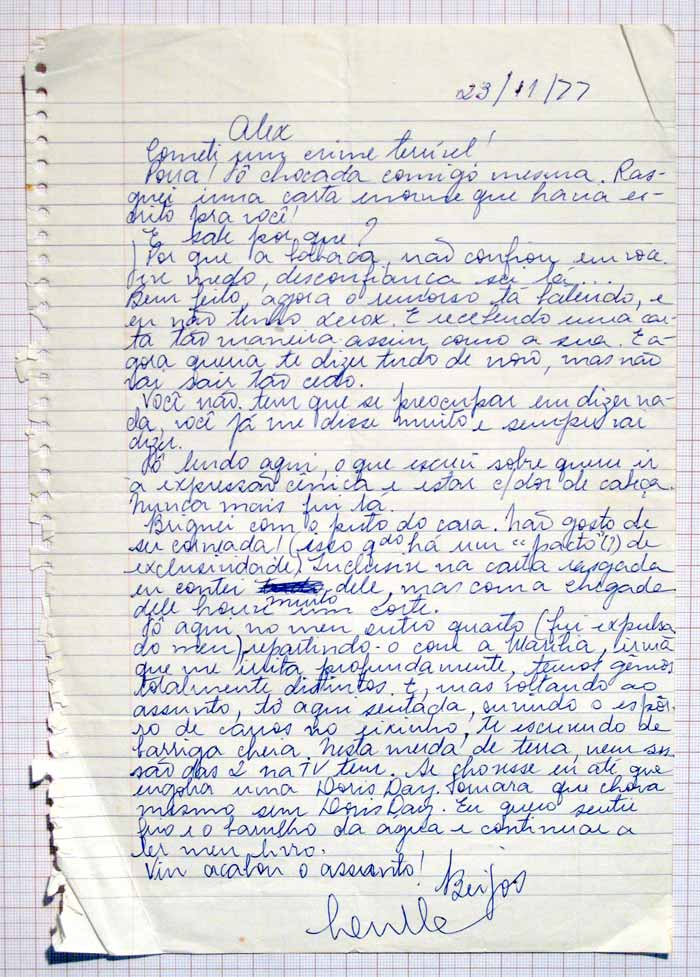 23/11/77
Alex
Cometi um crime terrível!
Porra! Tô chocada comigo mesma. Ras-
guei uma carta enorme que havia es-
crito pra você!
E sabe por que?
Por que a babaca, não confiou em você.
Tive medo, desconfiança sei lá...
Bem feito, agora o remorso tá batendo, e
eu não tenho xerox. E recebendo uma car-
ta tão maneira assim como a sua. E a-
gora queria te dizer tudo de novo, mas não
vai sair tão cedo.
Você não tem que se preocupar em dizer na-
da, você já me disse muito e sempre vai
dizer.
Tô lendo aqui, o que escrevi sobre querer ir
a expressão cênica e estar c/dor de cabeça.
Nunca mais fui lá.
Briguei com o puto do cara. Não gosto de
ser corneada! (isso qdo há um "pacto"(?) de
exclusividade) Inclusive na carta rasgada
eu contei dele, mas com a chegada
dele houve muito um corte.
Tô aqui no meu outro quarto (fui expulsa
do meu) repartindo-o com a Marília, irmã
que me irrita profundamente, temos gênios
totalmente distintos. É, mas voltando ao
assunto, tô aqui sentada, ouvindo o
de carros no, te escrevendo de
barriga cheia. Nesta merda de terra, nem ses-
são das 2 na TV tem. Se chovesse eu até que
engolia uma Doris Day. Tomara que chova
mesmo sem Doris Day. Eu quero sentir
frio e o barulho da água e continuar a
ler meu livro.
Viu acabou o assunto!
Beijos